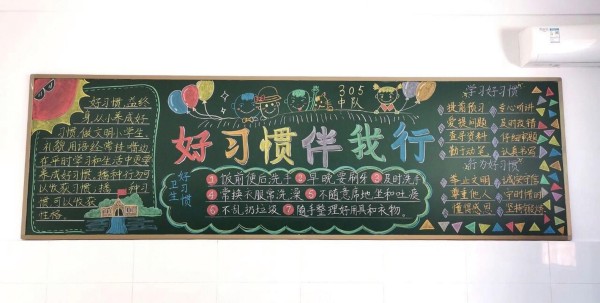 好习惯,益终
身从小养成好
习惯做文明小学生
礼貌用语经常挂嘴边
在平时学习和生活中更要
养成好习惯,播种行为可
以收获习惯,播种习
惯可以收获
性格
305
中队
好习惯伴我行
卫生
好习惯
①饭前便后洗手 ②早晚要刷牙 ③及时洗
④常换衣服常洗澡 ⑤不随意席地坐和吐痰
⑥不乱扔垃圾 ⑦随手整理好用具和衣物。
学习好习惯
提前预习 专心听讲
爱提问题 及时改错
查寻资料 仔细审题
勤于动笔 认真书写
行为好习惯
举止文明 诚实守信
尊重他人 守时惜时
懂得感恩 坚持锻炼